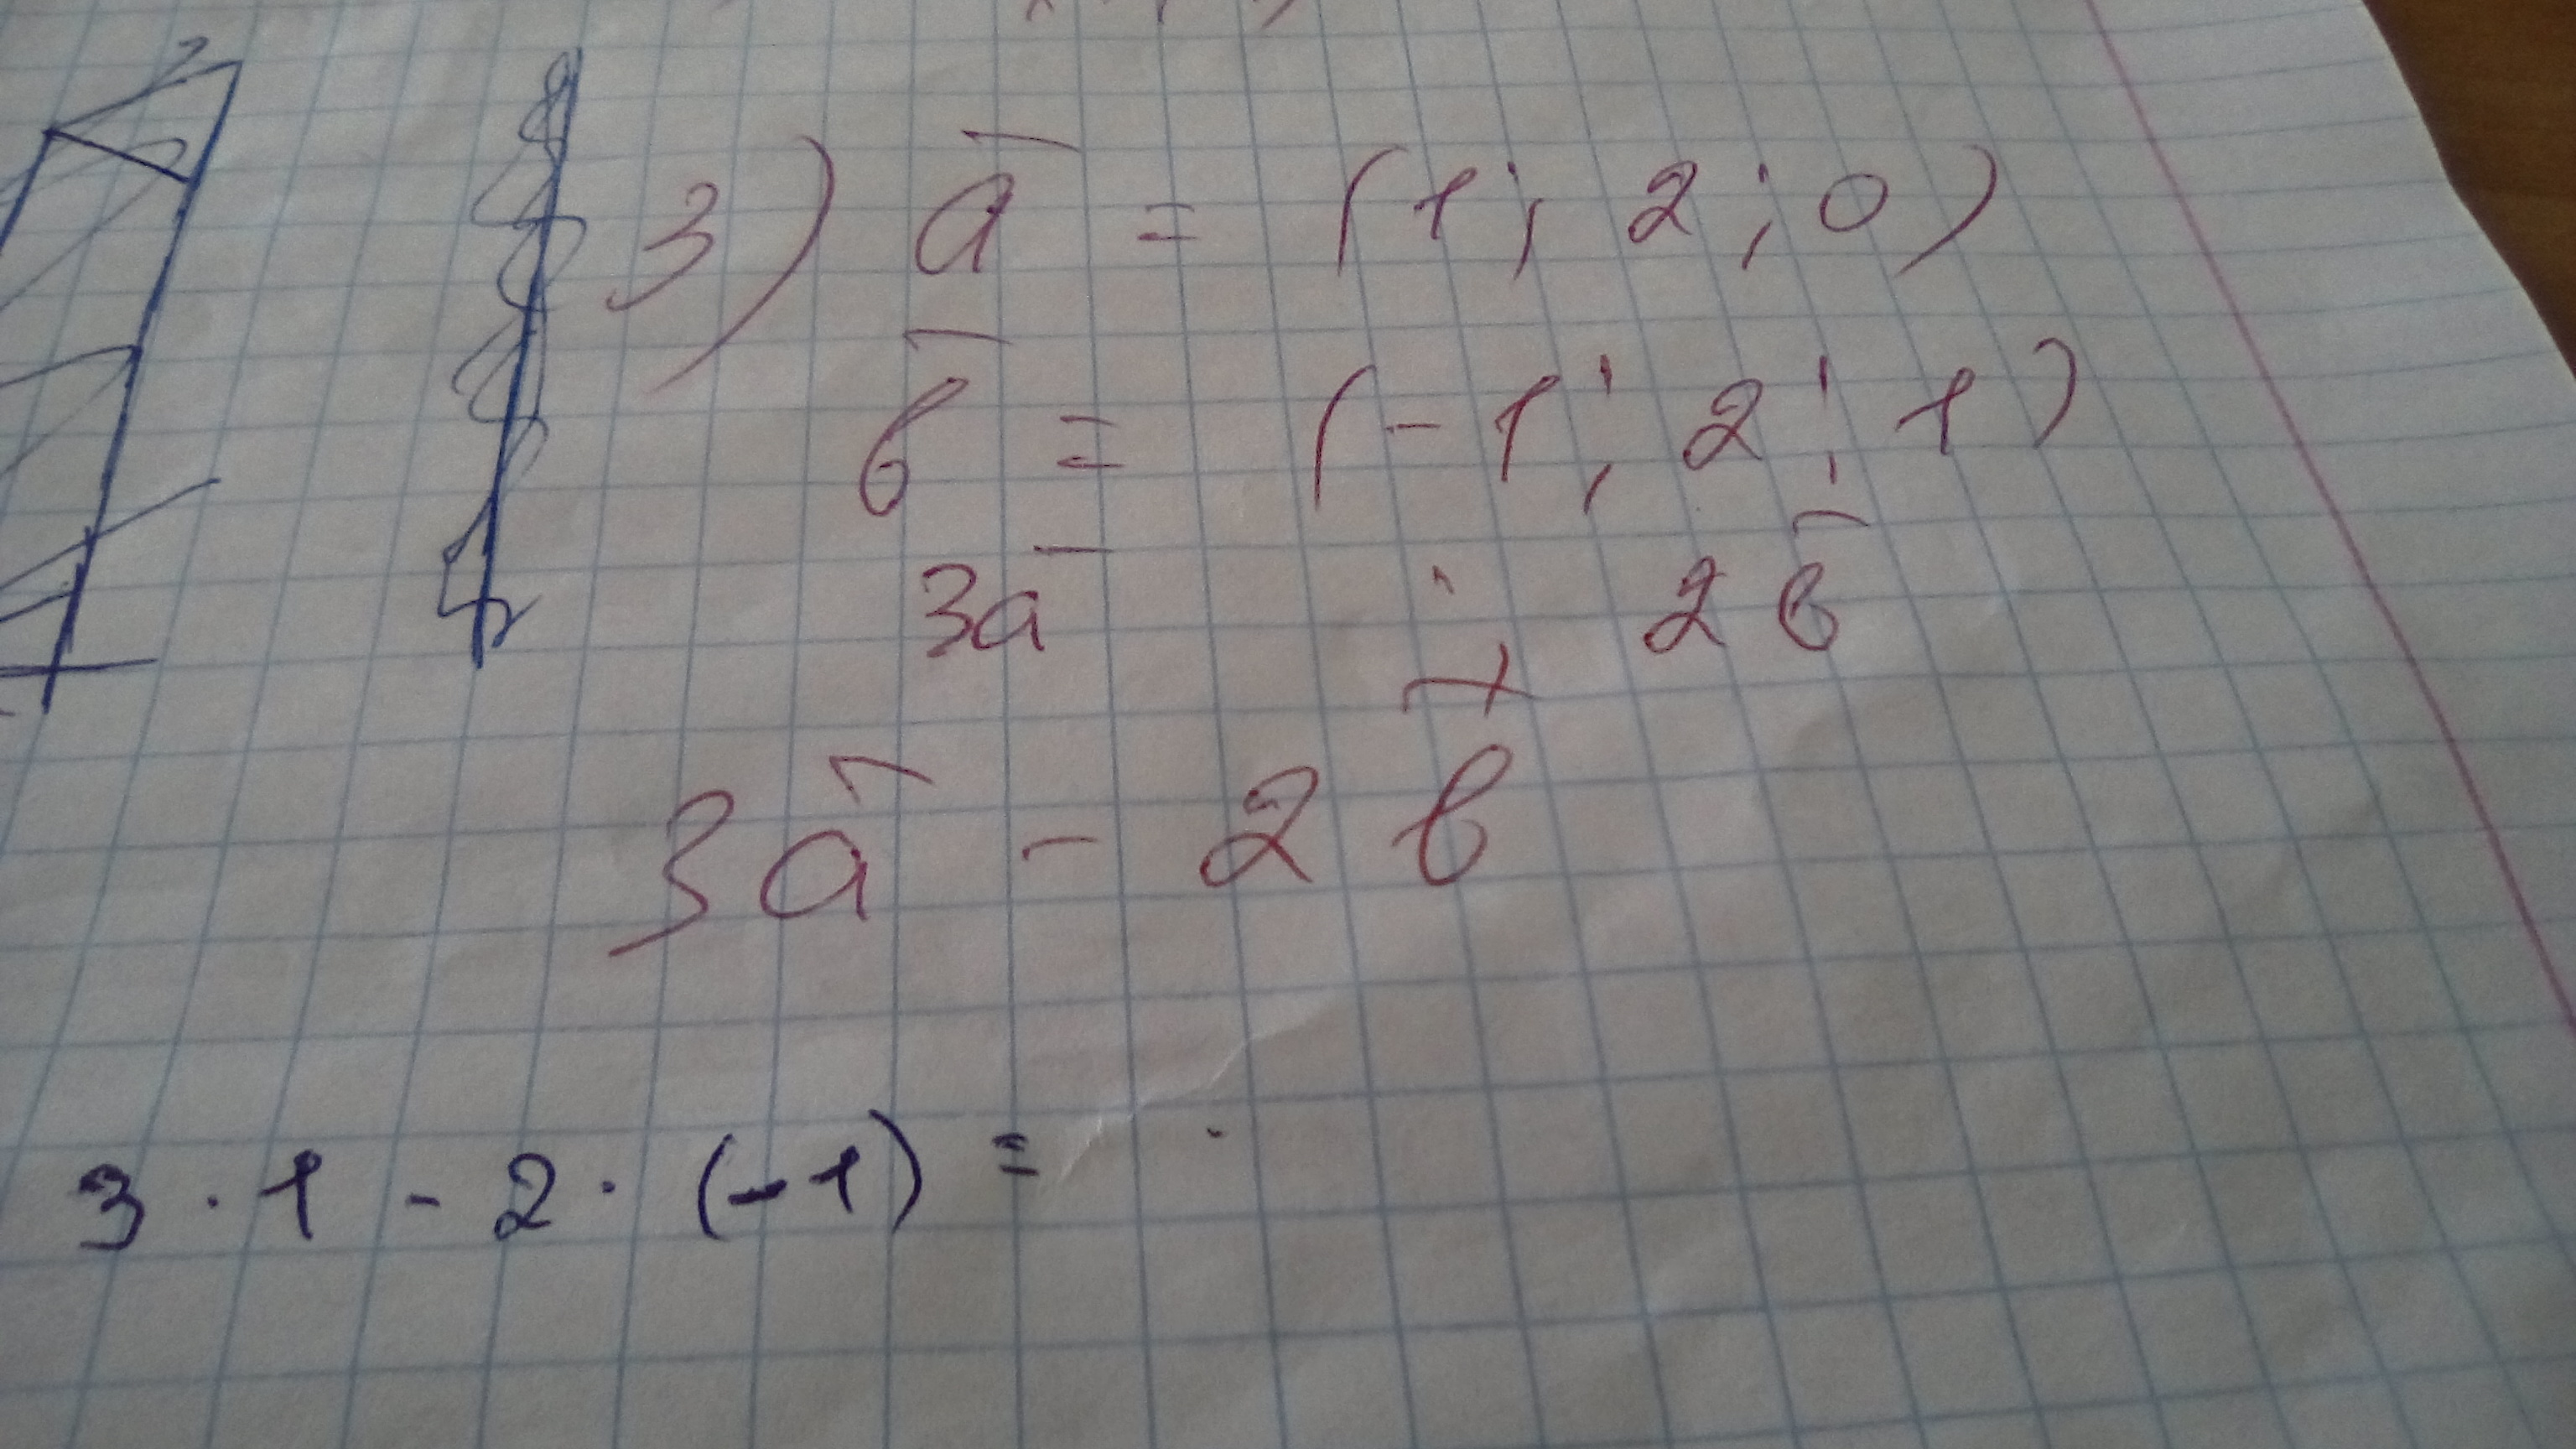 3) a̅ = (1; 2; 0)
в̅ = (-1; 2; 1)
3a̅ ; 2в̅
3a̅ - 2в̅
3 · 1 - 2 · (-1) =